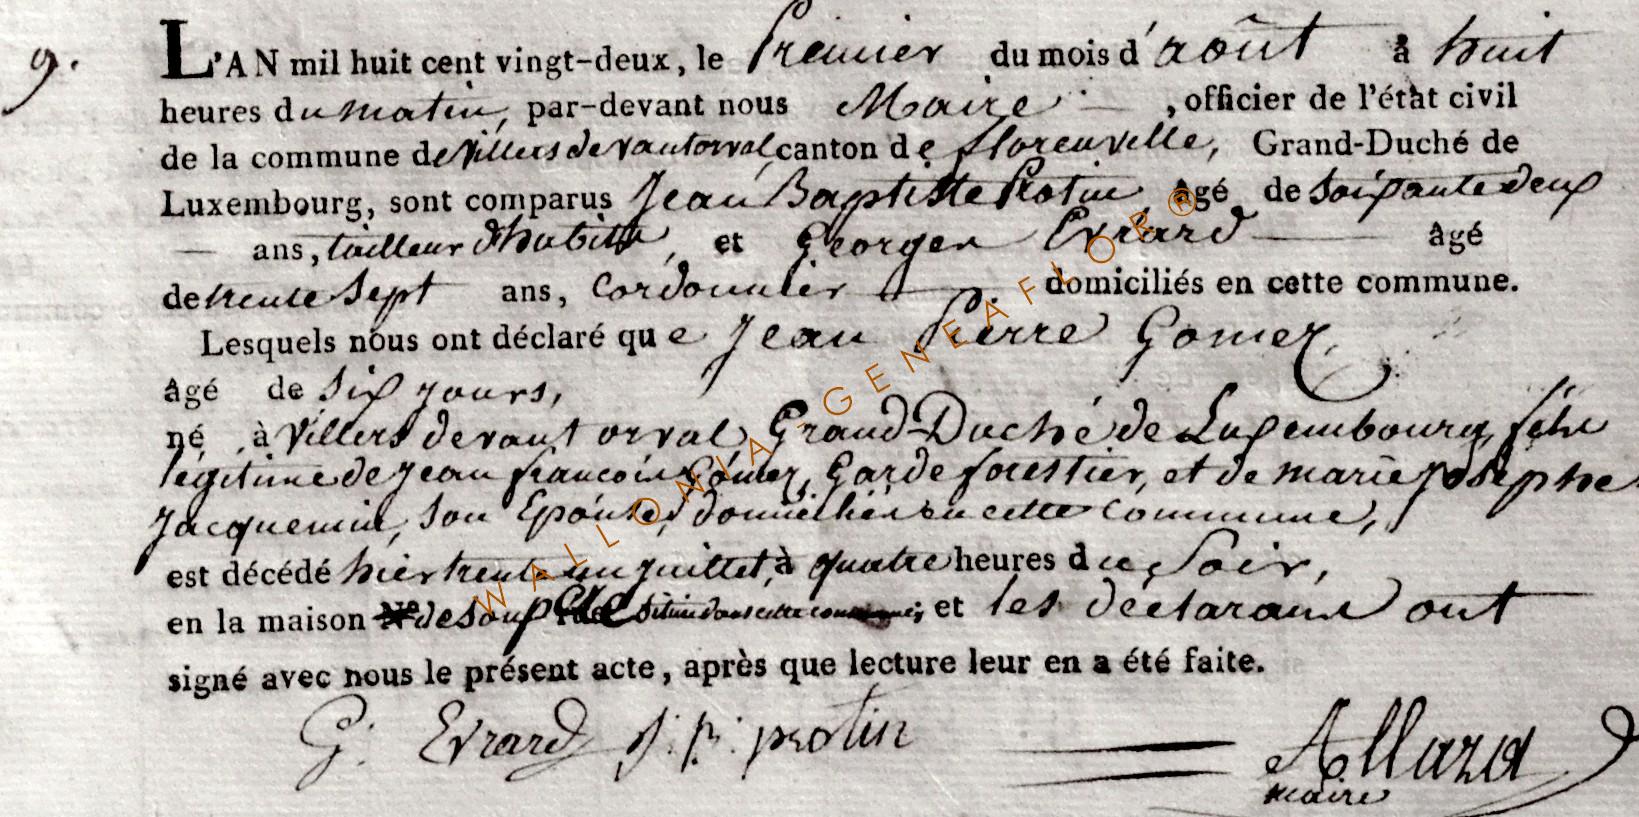 9.
L'AN mil huit cent vingt-deux, le Premier du mois d'août à huit
heures du matin, par-devant nous Maire, officier de l'état civil
de la commune de Villers devant orval, canton de florenville, Grand-Duché de
Luxembourg, sont comparus Jean Baptiste Protin, âgé de soixante deux
— ans, tailleur d'habits, et Georges Evrard — âgé
de trente sept ans, Cordonnier — domiciliés en cette commune.
Lesquels nous ont déclaré que Jean Pierre Gomez,
âgé de six jours,
né à Villers devant orval, Grand-Duché de Luxembourg, fils
légitime de Jean françois Gomez, Garde forestier, et de marie Josephe
Jacquemin, son Epouse, domiciliés en cette commune,
est décédé hier trente un juillet, à quatre heures du soir,
en la maison N° de son père située dans cette commune; et les déclarans ont
signé avec nous le présent acte, après que lecture leur en a été faite.
G. Evrard J. B. protin Allard
maire
WALLONIA-GENEAFLOR®